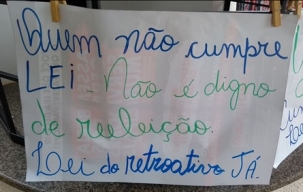 Quem não cumpre
LEi - Não é digno
de reeleição.
Lei do retroativo JÁ.